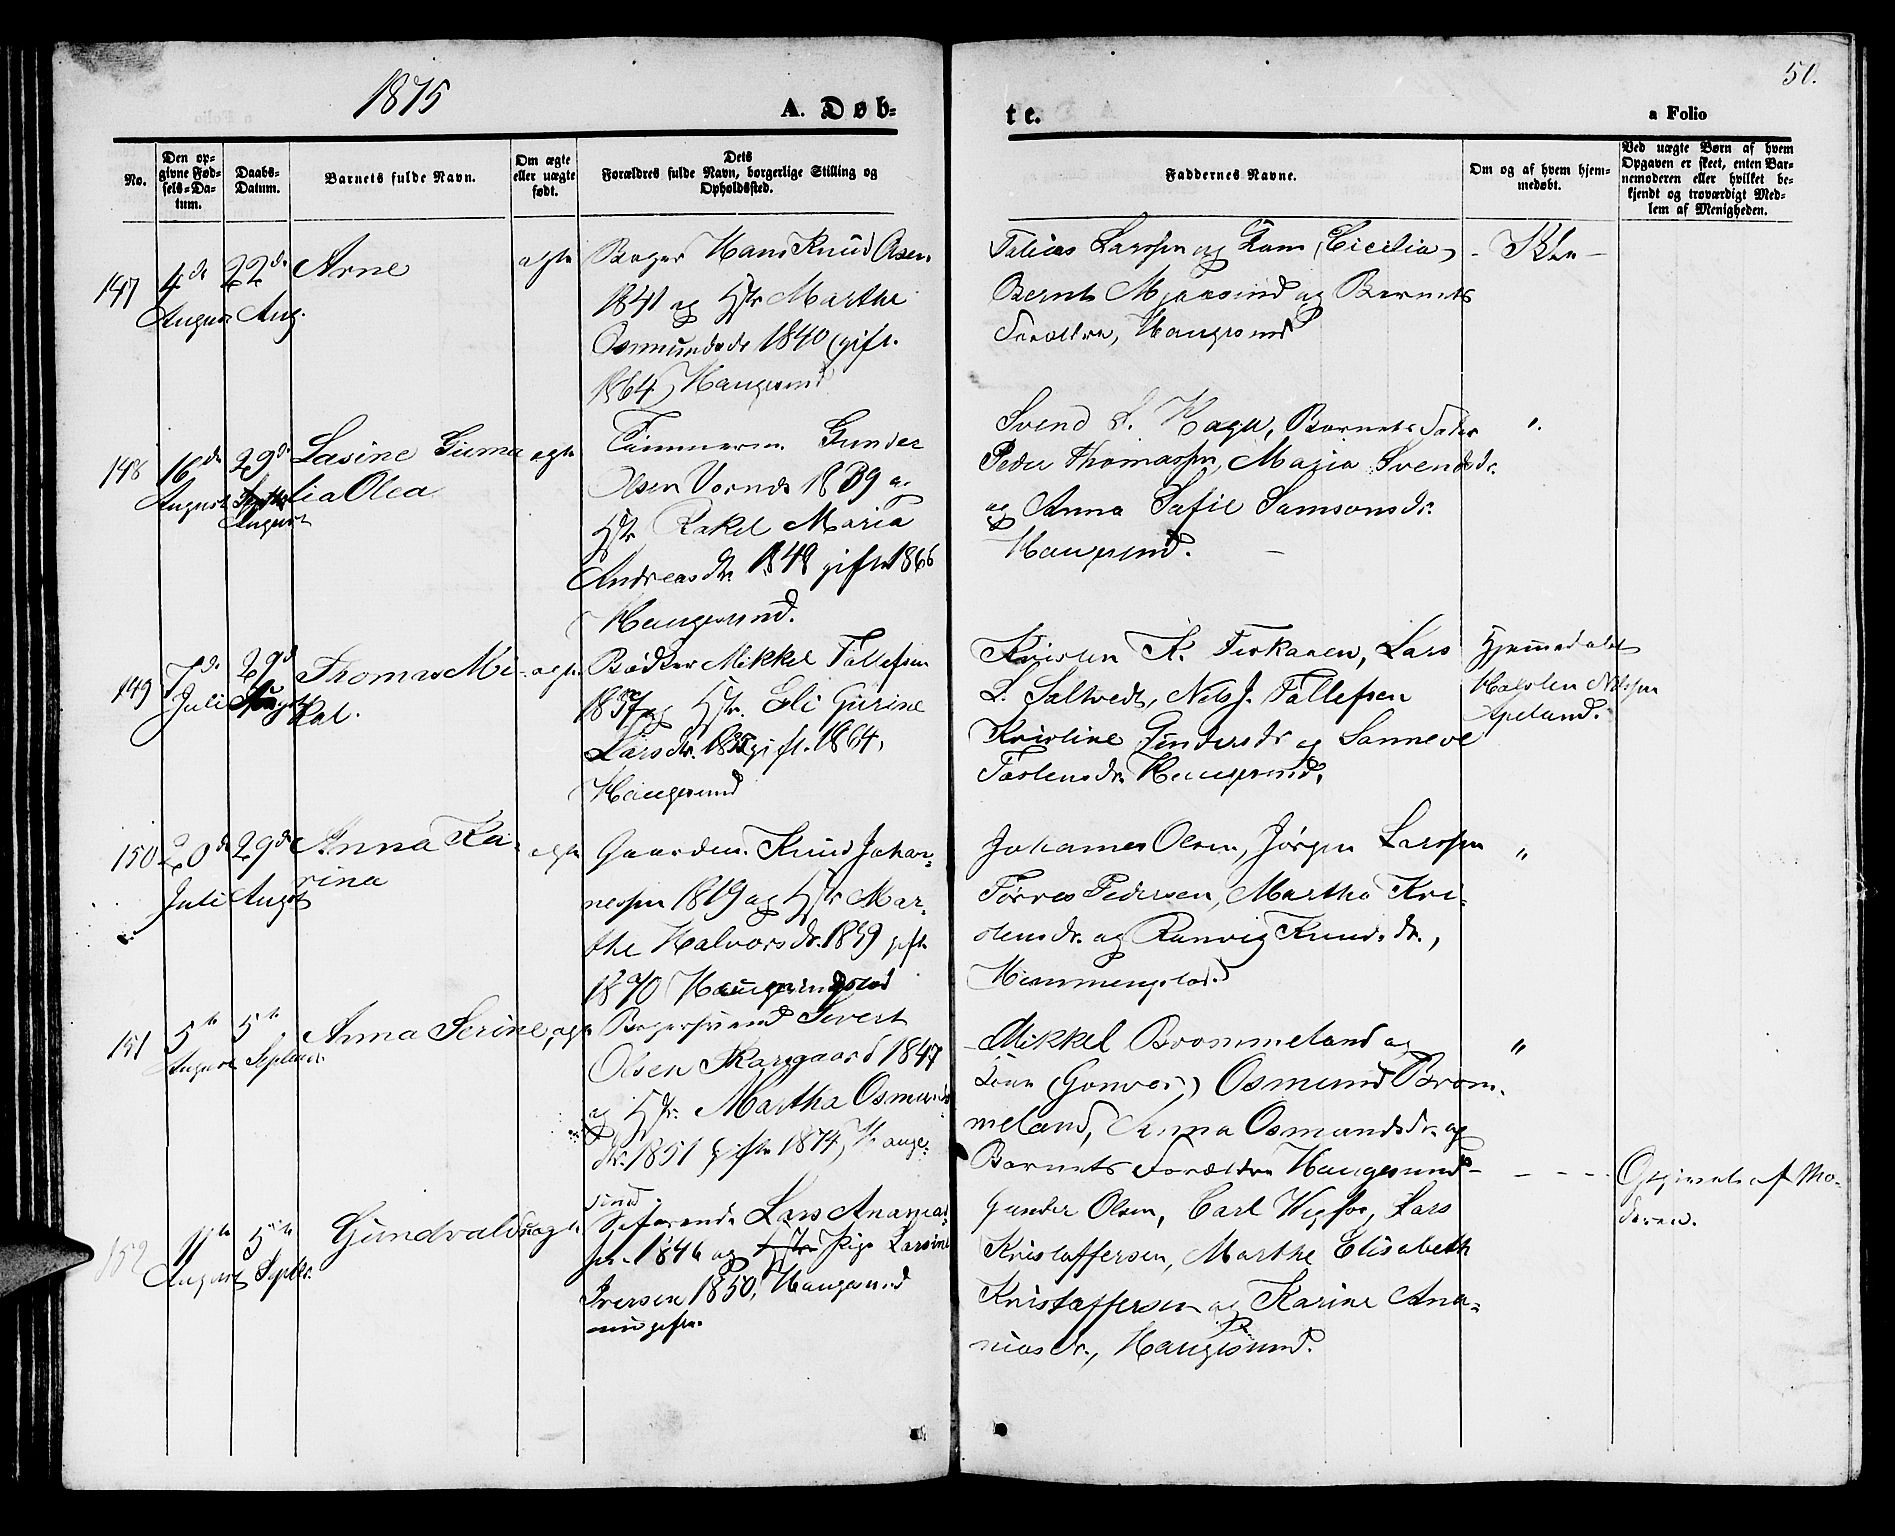 1875
A. Døb-
te.
a Folio
50.
No.
Den op-
givne Fød-
sels-Da-
tum.
Daabs-
Datum.
Barnets fulde Navn.
Om ægte
eller uægte
født.
Dets
Forældres fulde Navn, borgerlige Stilling og
Opholdssted.
Faddernes Navne.
Om og af hvem hjem-
medøbt.
Ved uægte Børn af hvem
Opgaven er skeet, enten Bar-
nemoderen eller hvilket be-
kjendt og troværdigt Med-
lem af Menigheden.
147
4de
August
22de
Aug.
Arne
ægte
Bager Hans Knud Olsen
1841 og Hstr Marthe
Osmundsdr 1840 (gift
1864) Haugesund
Tobias Larssen og Kone (Cicilia)
Bernt og Barnets
Forældre, Haugesund
148
16de
August
29de
August
Lasine Guma
lia Olea
ægte
Tømmerm. Gunder
Olsen 1839 og
Hstr Rakel Maria
Andreasdtr 1848 gift 1866
Haugesund.
Svend L. Hage, Barnets Fader
Peder Thomassen, Maria Svendsdr.
og Anna Sofie Samsonsdr.
Haugesund.
"
149
7de
Juli
29de
Augst
Thomas Mi-
kal.
ægte
Bødker Mikkel Tollefsen
1837 og Hstr. Eli Gurine
Larsdtr. gift. 1864,
Haugesund
Kristen K. Lars
L. Saltvedt, Nils J. Tollefsen
Kristine Gundersdr og Sanneve
Torstensdr. Haugesund.
Hjemmedøbt
Nilssen
Apeland.
150
20de
Juli
29de
Augst
Anna Ka-
rina
ægte
Gaardm. Knud Johan-
nessen 1819 og Hstr Mar-
the Halvorsdr. 1839 gift
1870
Johannes Olsen, Jørgen Larssen
Tørres Pedersen, Martha Kri-
stensdr. og Ranvig Knudsdr.,
"
151
5te
August
5te
Septembr.
Anna Serine,
ægte
Sivert
Olsen Skaregaard 1847
og Hstr. Martha Osmunds
dtr. 1851 gifte 1874, Hauge-
sund
Mikkel Brommeland og
Kone (Gonvor) Osmund Brom-
meland, Anna Osmundsdr. og
Barnets Forældre Haugesund
"
152
11te
August
5te
Septbr.
Gundvald
uægte
Søfarende Lars Ananias-
sen 1846 og Pige Larsine
Iversen 1850, Haugesund
Gunder Olsen, Carl Lars
Kristoffersen, Marthe Elisabeth
Kristoffersen og Karine Ana-
niasdr., Haugesund.
Opgivet af Mo-
deren.